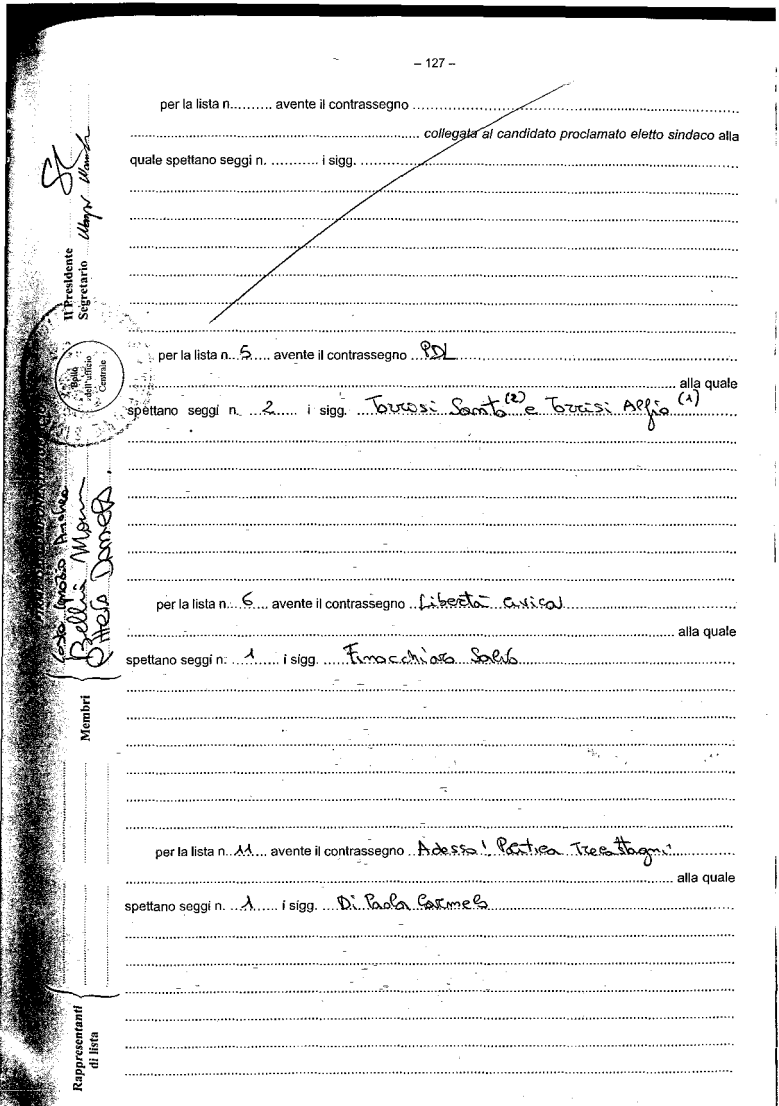 – 127 –
per la lista n.......... avente il contrassegno
collegata al candidato proclamato eletto sindaco alla
quale spettano seggi n. ............ i sigg.
per la lista n. 5 avente il contrassegno PDL
alla quale
spettano seggi n. 2 i sigg. Torrisi Santo (2) e Torrisi Alfio (1)
per la lista n. 6 avente il contrassegno Libertà civica
alla quale
spettano seggi n. 1 i sigg. Finocchiaro
per la lista n. 11 avente il contrassegno Adesso! Trecastagni
alla quale
spettano seggi n. 1 i sigg. Di Paola Carmelo
Il Presidente
Segretario
Bollo
dell'ufficio
Centrale
Membri
Bellia
Daniela
Rappresentanti
di lista